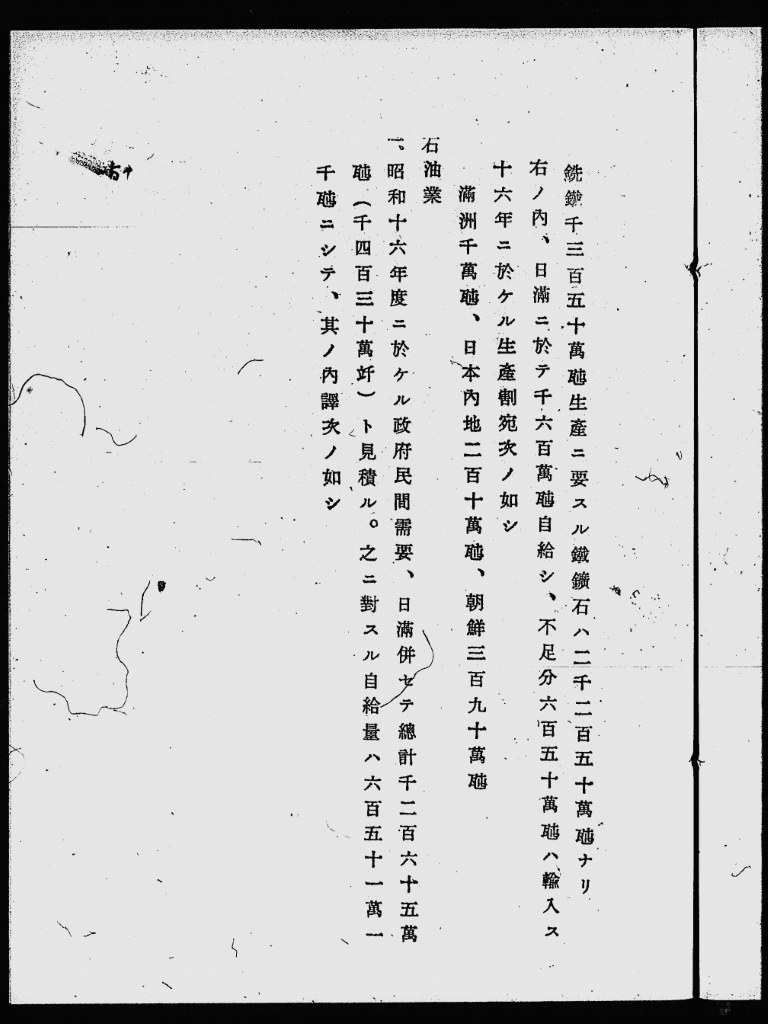 銑鐵千三百五十萬瓲生產ニ要スル鐵鑛石ハ二千二百五十萬瓲ナリ
右ノ內、日滿ニ於テ千六百萬瓲自給シ、不足分六百五十萬瓲ハ輸入ス
十六年ニ於ケル生產割宛次ノ如シ
滿洲千萬瓲、日本內地二百十萬瓲、朝鮮三百九十萬瓲
石油業
一、昭和十六年度ニ於ケル政府民間需要、日滿併セテ總計千二百六十五萬
瓲(千四百三十萬竏)ト見積ル。之ニ對スル自給量ハ六百五十一萬一
千瓲ニシテ、其ノ內譯次ノ如シ